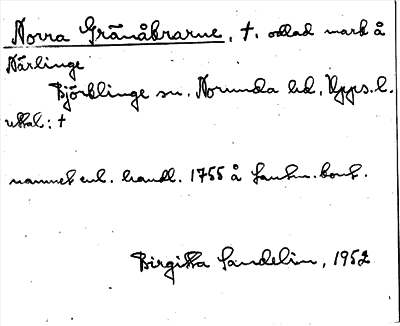 Norra Gränåkrarne, †. odlad mark å
Närlinge
Björklinge sn. Norunda hd, Upps. l.
uttal: †
namnet enl. handl. 1755 å Lantm. kont.
Birgitta Sandelin, 1952